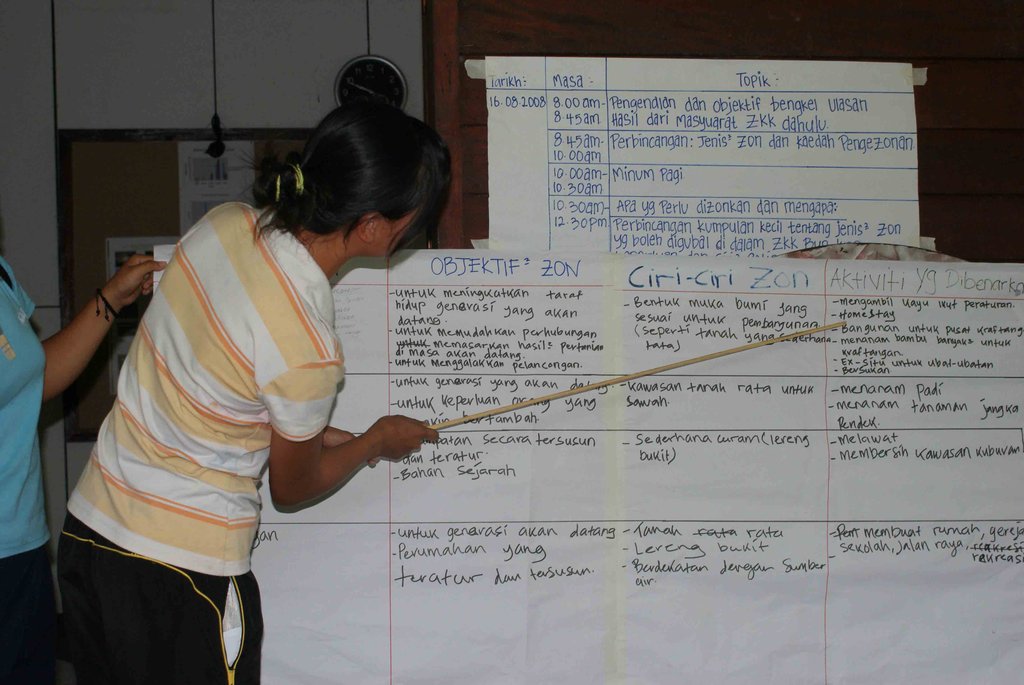 Tarikh: Masa:- Topik:
16.08.2008 8.00am- Pengenalan dan objektif bengkel ulasan
8.45am Hasil dari masyuarat ZKK dahulu.
8.45am- Perbincangan: Jenis² Zon dan Kaedah Pengezonan.
10.00am
10.00am- Minum Pagi
10.30am
10.30am- Apa yg Perlu dizonkan dan mengapa:
12.30pm Perbincangan kumpulan kecil tentang jenis² Zon
yg boleh digubal di dalam ZKK
OBJEKTIF² ZON
-untuk meningkatkan taraf
hidup generasi yang akan
datang.
-untuk memudahkan perhubungan
untuk memasarkan hasil² pertanian
di masa akan datang.
-untuk menggalakkan pelancongan.
-untuk generasi yang akan datang
-untuk keperluan orang yang
bertambah.
secara tersusun
dan teratur.
-Bahan Sejarah
-untuk generasi akan datang
-Perumahan yang
teratur dan tersusun.
Ciri-Ciri Zon
-Bentuk muka bumi yang
sesuai untuk pembangunan
(seperti tanah yang sederhana
rata)
-Kawasan tanah rata untuk
sawah.
-Sederhana curam (lereng
bukit)
-Tanah rata rata
-Lereng bukit
-Berdekatan dengan Sumber
air.
Aktiviti Yg Dibenark
-mengambil kayu ikut peraturan.
-Homestay
-Bangunan untuk pusat kraftang
-menanam bambu banyak² untuk
kraftangan.
-Ex-Situ untuk ubat-ubatan
-Bersukan
-menanam Padi
-menanam tanaman jangka
Pendek.
-melawat
-membersih kawasan kuburan
membuat rumah, gereja
sekolah, jalan raya,
rekreasi